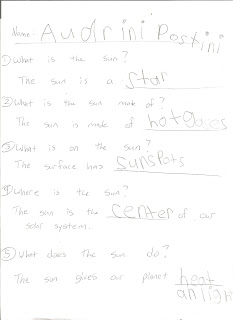 Name: Audrini Postini
① What is the sun?
The sun is a star
② What is the sun made of?
The sun is made of hot gases
③ What is on the sun?
The surface has sunspots
④ Where is the sun?
The sun is the center of our
solar system.
⑤ What does the sun do?
The sun gives our planet heat
an light